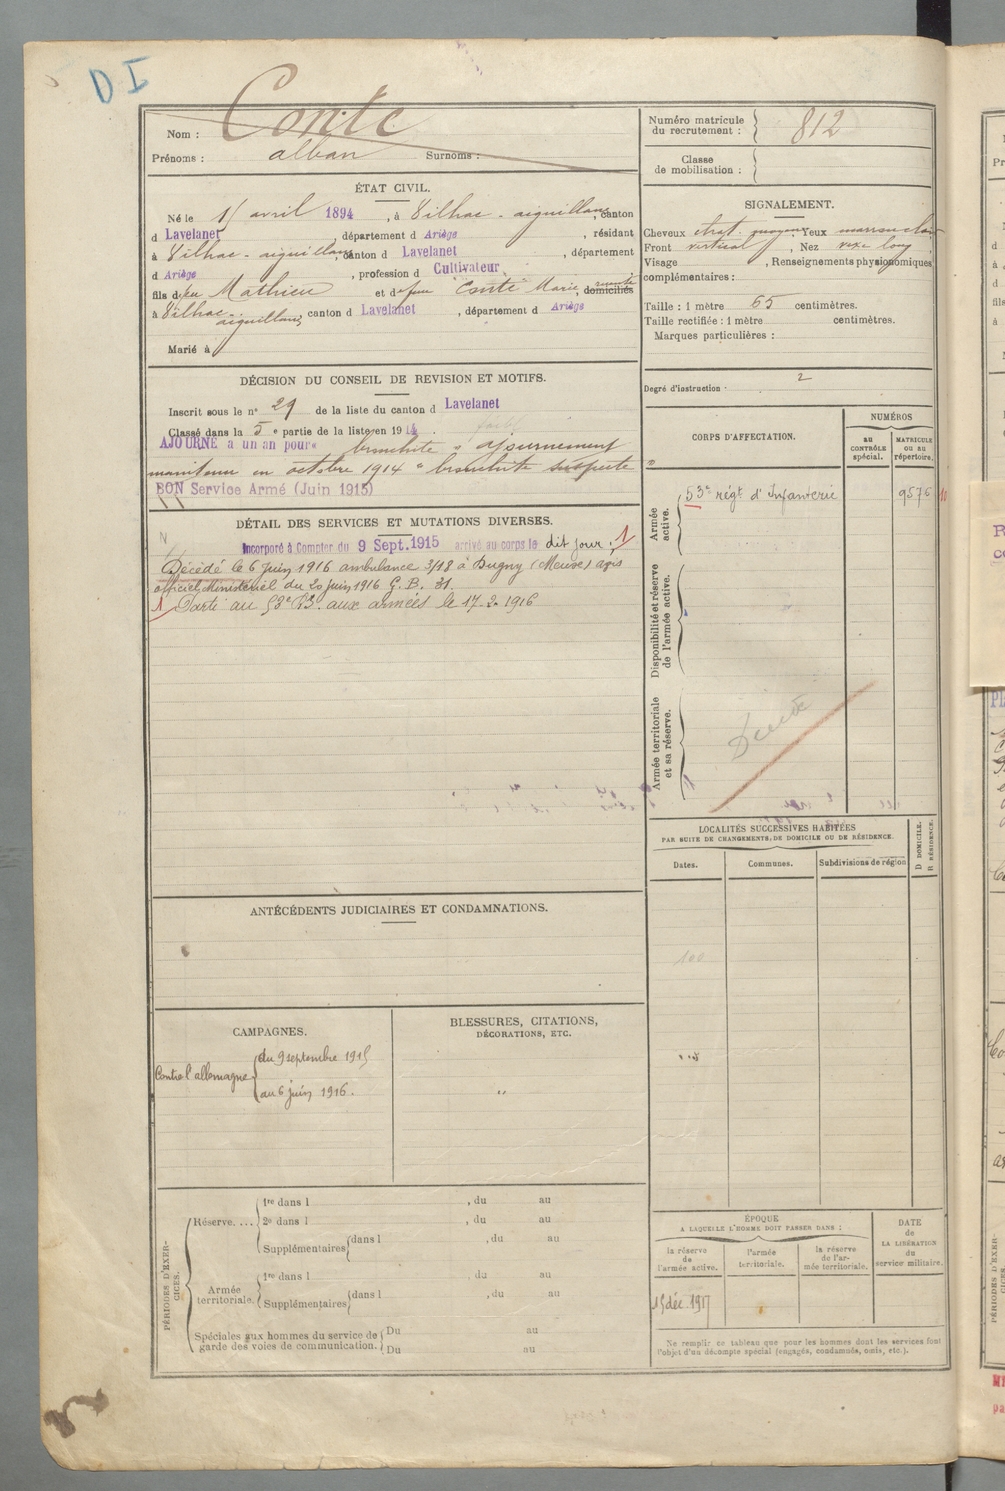 DI
Nom : Conte
Prénoms : alban Surnoms :
Numéro matricule
du recrutement : 812
Classe
de mobilisation :
ÉTAT CIVIL.
Né le 15 avril 1894, à Vilhac-aiguillanes, canton
d Lavelanet, département d Ariège, résidant
à Vilhac-aiguillanes, canton d Lavelanet, département
d Ariège, profession d Cultivateur
fils de feu Mathieu et de feue Conte Marie, domiciliés
à Vilhac-aiguillanes, canton d Lavelanet, département d Ariège
Marié à
SIGNALEMENT.
Cheveux chat. moyen, Yeux marron clair
Front vertical, Nez long
Visage , Renseignements physiognomiques
complémentaires :
Taille : 1 mètre 65 centimètres.
Taille rectifiée : 1 mètre centimètres.
Marques particulières :
Degré d'instruction 2
DÉCISION DU CONSEIL DE REVISION ET MOTIFS.
Inscrit sous le n° 29 de la liste du canton d Lavelanet
Classé dans la 5e partie de la liste en 1914
AJOURNÉ à un an pour « bronchite » ajournement
maintenu en octobre 1914 « bronchite suspecte
BON Service Armé (Juin 1915)
DÉTAIL DES SERVICES ET MUTATIONS DIVERSES.
N
Incorporé à Compter du 9 Sept. 1915 arrivé au corps le dit jour. 1
Décédé le 6 juin 1916 ambulance 3/18 à Dugny (Meuse) avis
officiel Ministériel du 20 juin 1916 G. B. 31.
1 Parti au 53e R.I. aux armées le 17-2-1916
CORPS D'AFFECTATION.
NUMÉROS
AU
CONTRÔLE
spécial.
MATRICULE
OU AU
répertoire.
Armée
active.
53e régt d'Infanterie 9576 10
Disponibilité et réserve
de l'armée active.
Armée territoriale
et sa réserve.
Décédé
LOCALITÉS SUCCESSIVES HABITÉES
PAR SUITE DE CHANGEMENTS DE DOMICILE OU DE RÉSIDENCE.
Dates. Communes. Subdivisions de région
D DOMICILE.
R RÉSIDENCE.
ANTÉCÉDENTS JUDICIAIRES ET CONDAMNATIONS.
CAMPAGNES.
Contre l'allemagne
du 9 septembre 1915
au 6 juin 1916.
BLESSURES, CITATIONS,
DÉCORATIONS, ETC.
"
PÉRIODES D'EXERCICES.
Réserve. ...
1re dans l , du au
2e dans l , du au
Supplémentaires dans l , du au
Armée
territoriale.
1re dans l , du au
Supplémentaires dans l , du au
Spéciales aux hommes du service de
garde des voies de communication.
Du au
Du au
ÉPOQUE
A LAQUELLE L'HOMME DOIT PASSER DANS :
la réserve
de
l'armée active.
l'armée
territoriale.
la réserve
de l'ar-
mée territoriale.
DATE
de
LA LIBÉRATION
du
service militaire.
15 déc. 1917
Ne remplir ce tableau que pour les hommes dont les services font
l'objet d'un décompte spécial (engagés, condamnés, omis, etc.).